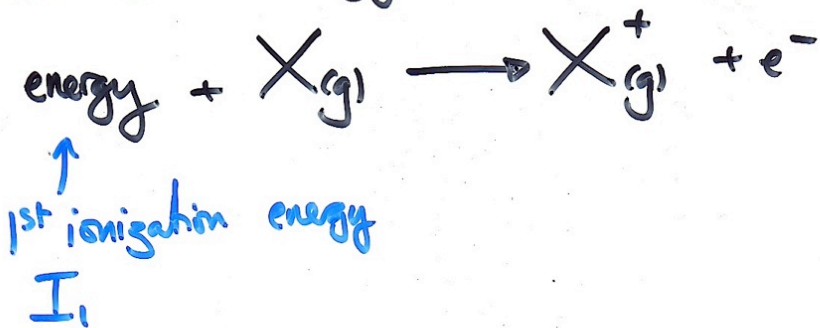 energy + X(g) → X⁺(g) + e⁻
↑
1st ionization energy
I₁